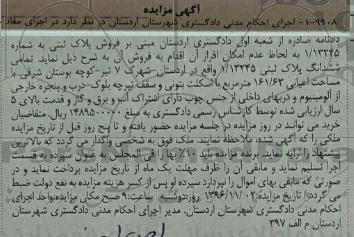 آگهی مزایده
۱-۹۹۰۸ اجرای احکام مدنی دادگستری شهرستان اردستان در نظر دارد در اجرای مفاد
دادنامه صادره از شعبه اول دادگستری اردستان مبنی بر فروش پلاک ثبتی به شماره
۱/۱۳۲۴۵ به لحاظ عدم امکان افراز آن اقدام به فروش آن به شرح ذیل نماید. تمامی
ششدانگ پلاک ثبتی ۱/۱۳۲۴۵ واقع در اردستان-شهرک ۷ تیر-کوچه بوستان شرقی با
مساحت اعیانی ۱۶۱/۶۳ مترمربع با اسکلت بتونی و سقف تیرچه بلوک-درب و پنجره خارجی
از آلومینیوم و دربهای داخلی از جنس چوب دارای اشتراک آب و برق و گاز و قدمت بالای ۵
سال ارزیابی شده توسط کارشناس رسمی دادگستری به مبلغ ۱۴۸۹۵۰۰۰۰۰ ریال. متقاضیان
خرید می توانند در روز مزایده در جلسه مزایده حضور یافته و تا پنج روز قبل از تاریخ مزایده
ملکی را که آگهی شده، ملاحظه نمایند. ملک فوق به شخصی واگذار می گردد که بالاترین
پیشنهاد را ارایه نماید. برنده مزایده باید ۱۰٪ بها را فی المجلس به عنوان سپرده به قسمت
اجرا تسلیم نماید و مابقی آن را ظرف مهلت یک ماه از تاریخ مزایده پرداخت نماید و در
صورتی که مابقی بهای اموال را نپردازد سپرده او پس از کسر هزینه مزایده به نفع دولت ضبط
می گردد/ تاریخ مزایده: ۱۳۹۶/۱۱/۰۲ روز دوشنبه ساعت: ۹ صبح مکان مزایده: واحد اجرای
احکام مدنی دادگستری شهرستان اردستان. مدیر اجرای احکام مدنی دادگستری شهرستان
اردستان م الف ۳۹۷